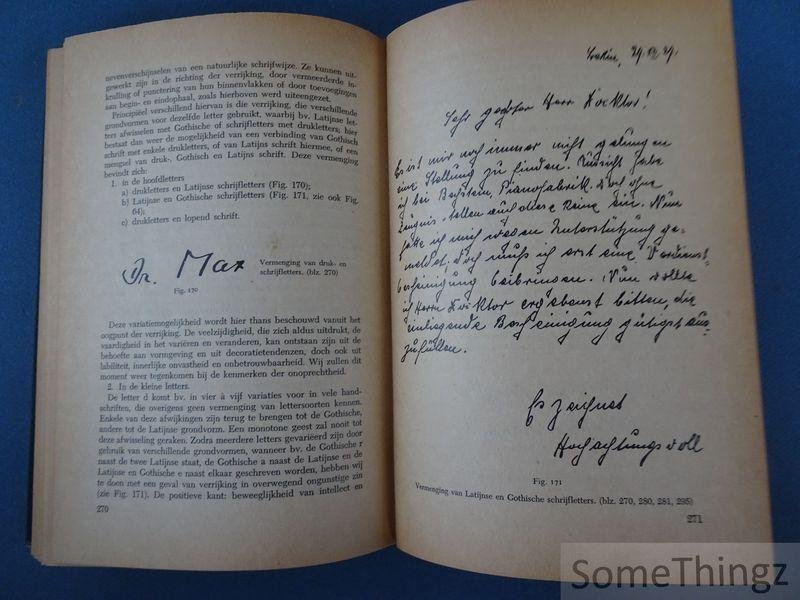 nevenverschijnselen van een natuurlijke schrijfwijze. Ze kunnen uit-
gewerkt zijn in de richting der verrijking, door vermeerderde in-
krulling of punctering van hun binnenvlakken of door toevoegingen
aan begin- en eindophaal, zoals hierboven werd uiteengezet.
Principieel verschillend hiervan is die verrijking, die verschillende
grondvormen voor dezelfde letter gebruikt, waarbij bv. Latijnse let-
ters afwisselen met Gothische of schrijfletters met drukletters; hier
bestaat dan weer de mogelijkheid van een verbinding van Gothisch
schrift met enkele drukletters, of van Latijns schrift hiermee, of een
mengsel van druk-, Gothisch en Latijns schrift. Deze vermenging
bevindt zich:
1. in de hoofdletters
a) drukletters en Latijnse schrijfletters (Fig. 170);
b) Latijnse en Gothische schrijfletters (Fig. 171, zie ook Fig.
64);
c) drukletters en lopend schrift.
Dr. Max
Vermenging van druk- en
schrijfletters. (blz. 270)
Fig. 170
Deze variatiemogelijkheid wordt hier thans beschouwd vanuit het
oogpunt der verrijking. De veelzijdigheid, die zich aldus uitdrukt, de
vaardigheid in het variëren en veranderen, kan ontstaan zijn uit de
behoefte aan vormgeving en uit decoratietendenzen, doch ook uit
labiliteit, innerlijke onvastheid en onbetrouwbaarheid. Wij zullen dit
moment weer tegenkomen bij de kenmerken der onoprechtheid.
2. In de kleine letters.
De letter d komt bv. in vier à vijf variaties voor in vele hand-
schriften, die overigens geen vermenging van lettersoorten kennen.
Enkele van deze afwijkingen zijn terug te brengen tot de Gothische,
andere tot de Latijnse grondvorm. Een monotone geest zal nooit tot
deze afwisseling geraken. Zodra meerdere letters gevariëerd zijn door
gebruik van verschillende grondvormen, wanneer bv. de Gothische r
naast de twee Latijnse staat, de Gothische a naast de Latijnse en de
Latijnse en Gothische e naast elkaar geschreven worden, hebben wij
te doen met een geval van verrijking in overwegend ongunstige zin
(zie Fig. 171). De positieve kant: beweeglijkheid van intellect en
270
29.
Sehr geehrter Herr Doektor!
Es ist mir noch immer nicht gelungen
eine Stellung zu finden. Aussicht habe
ich bei Bechstein, Pianofabrik, doch ohne
Zeugnis stellen auch diese keine ein. Nun
hatte ich mich wegen Unterstützung ge-
meldet, doch muss ich erst eine Verdienst-
bescheinigung beibringen. Nun wollte
ich Herrn Doektor ergebenst bitten, die
einliegende Bescheinigung gütigst aus-
zufüllen.
Es zeichnet
Hochachtungsvoll
Fig. 171
Vermenging van Latijnse en Gothische schrijfletters. (blz. 270, 280, 281, 295)
271
SomeThingz